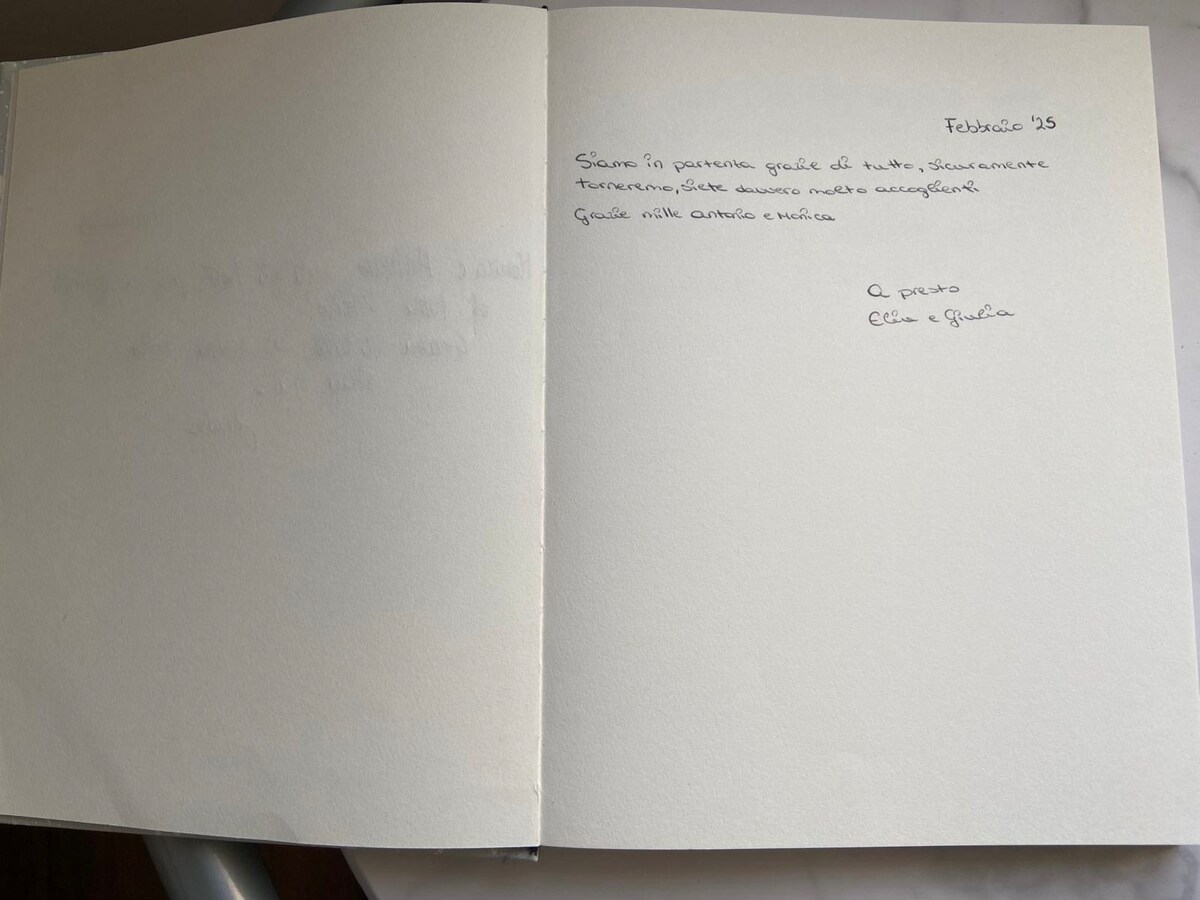 Febbraio '25
Siamo in partenza grazie di tutto, sicuramente
torneremo, siete davvero molto accoglienti
Grazie mille Antonio e Monica
A presto
e Giulia